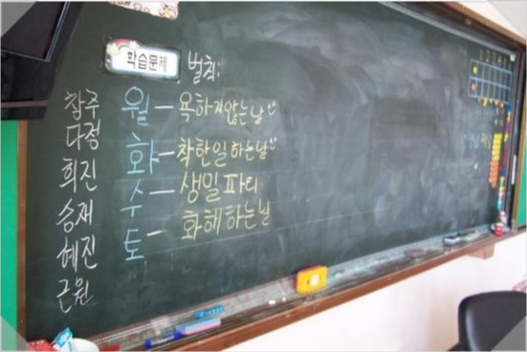 학습문제
벌칙:
월 - 욕하지않는날
화 - 착한일하는날
수 - 생일파티
토 - 화해하는날
다정
희진
승재
혜진
근원